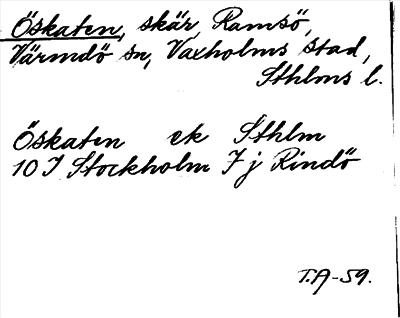 Öskaten, skär, Ramsö,
Värmdö sn, Vaxholms stad,
Sthlms l.
Öskaten ek Sthlm
10 I Stockholm 7 j Rindö
T.A-59.